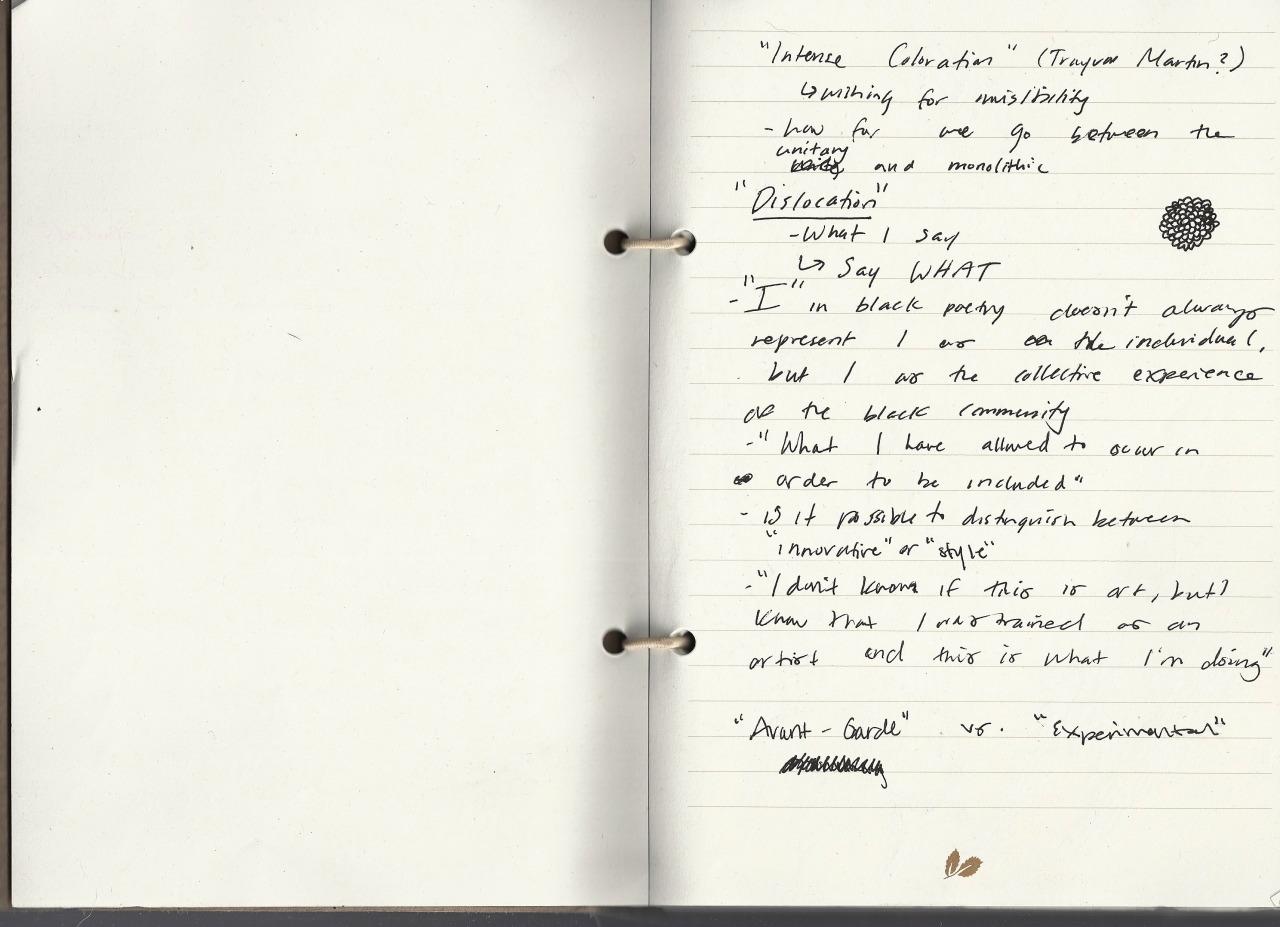 "Intense Coloration" (Trayvon Martin?)
↳ wishing for invisibility
- how far we go between the
unitary
and monolithic
"Dislocation"
- What I say
↳ Say WHAT
- "I" in black poetry doesn't always
represent I as the individual,
but I as the collective experience
of the black community
- "What I have allowed to occur in
order to be included"
- is it possible to distinguish between
"innovative" or "style"
- "I don't know if this is art, but I
know that I was trained as an
artist and this is what I'm doing"
"Avant-Garde" vs. "Experimental"